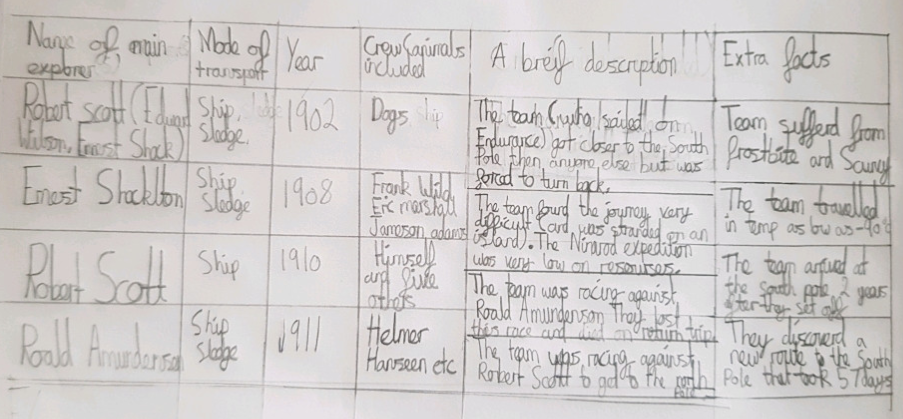 Name of main explorer
Mode of transport
Year
Crew & animals included
A breif description
Extra facts
Robert scott (Edward
Wilson, Ernest Shack)
Ship,
sledge.
1902
Dogs
The team (who sailed on
Endurance) got closer to the South
Pole then anyone else but was
forced to turn back.
Team sufferd from
frostbite and Scurvy
Ernest Shacklton
Ship
Sledge
1908
Frank Wild
Eric marshall
Jameson adams
The team found the journey very
difficult (and was stranded on an
island). The Nimrod expedition
was very low on resourses.
The team travelled
in temp as low as -40°c
Robert Scott
Ship
1910
Himself
and five
others
The team was racing against
Roald Amunderson They lost
this race and died on return trip
The team arrived at
the south pole 2 years
after they set off
Roald Amunderson
Ship
sledge
1911
Helmer
Hanseen etc
The team was racing against
Robert Scott to get to the
Pole
They discoverd a
new route to the South
Pole that took 57days